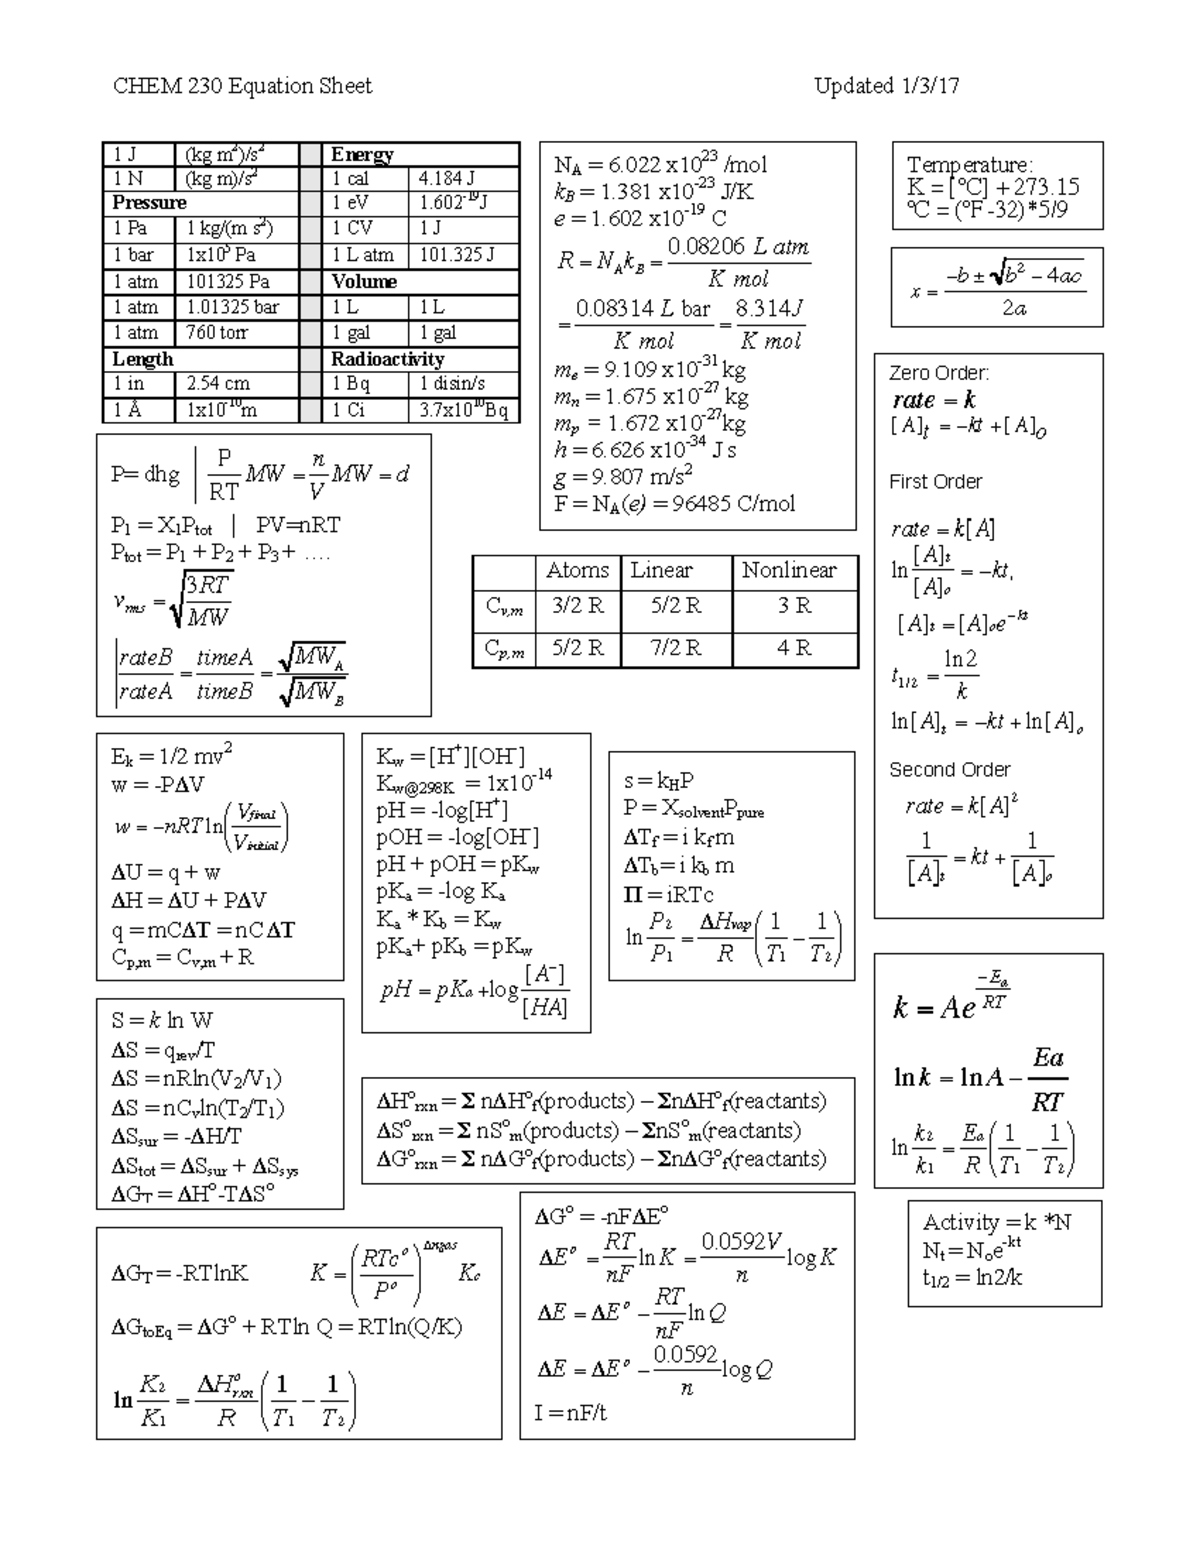 CHEM 230 Equation Sheet Updated 1/3/17
1 J (kg m²)/s² Energy
1 N (kg m)/s² 1 cal 4.184 J
Pressure 1 eV 1.602⁻¹⁹J
1 Pa 1 kg/(m s²) 1 CV 1 J
1 bar 1x10⁵ Pa 1 L atm 101.325 J
1 atm 101325 Pa Volume
1 atm 1.01325 bar 1 L 1 L
1 atm 760 torr 1 gal 1 gal
Length Radioactivity
1 in 2.54 cm 1 Bq 1 disin/s
1 Å 1x10⁻¹⁰m 1 Ci 3.7x10¹⁰Bq
N_A = 6.022 x10²³ /mol
k_B = 1.381 x10⁻²³ J/K
e = 1.602 x10⁻¹⁹ C
R = N_A k_B = 0.08206 L atm / K mol
= 0.08314 L bar / K mol = 8.314J / K mol
m_e = 9.109 x10⁻³¹ kg
m_n = 1.675 x10⁻²⁷ kg
m_p = 1.672 x10⁻²⁷kg
h = 6.626 x10⁻³⁴ J s
g = 9.807 m/s²
F = N_A(e) = 96485 C/mol
Temperature:
K = [°C] + 273.15
°C = (°F -32)*5/9
x = (−b ± √(b² − 4ac)) / 2a
P= dhg | P/RT MW = n/V MW = d
P₁ = X₁P_tot | PV=nRT
P_tot = P₁ + P₂ + P₃ + ….
v_rms = √(3RT/MW)
|rateB/rateA = timeA/timeB = √MW_A/√MW_B
Atoms Linear Nonlinear
C_v,m 3/2 R 5/2 R 3 R
C_p,m 5/2 R 7/2 R 4 R
Zero Order:
rate = k
[A]_t = −kt + [A]_O
First Order
rate = k[A]
ln [A]_t/[A]_o = −kt,
[A]_t = [A]_o e^−kt
t_1/2 = ln2/k
ln[A]_t = −kt + ln[A]_o
Second Order
rate = k[A]²
1/[A]_t = kt + 1/[A]_o
E_k = 1/2 mv²
w = -PΔV
w = −nRT ln(V_final/V_initial)
ΔU = q + w
ΔH = ΔU + PΔV
q = mCΔT = nCΔT
C_p,m = C_v,m + R
K_w = [H⁺][OH⁻]
K_w@298K = 1x10⁻¹⁴
pH = -log[H⁺]
pOH = -log[OH⁻]
pH + pOH = pK_w
pK_a = -log K_a
K_a * K_b = K_w
pK_a + pK_b = pK_w
pH = pK_a + log [A⁻]/[HA]
s = k_HP
P = X_solventP_pure
ΔT_f = i k_f m
ΔT_b = i k_b m
Π = iRTc
ln P₂/P₁ = ΔH_vap/R (1/T₁ − 1/T₂)
k = Ae^(−E_a/RT)
ln k = ln A − Ea/RT
ln k₂/k₁ = E_a/R (1/T₁ − 1/T₂)
S = k ln W
ΔS = q_rev/T
ΔS = nRln(V₂/V₁)
ΔS = nC_vln(T₂/T₁)
ΔS_sur = -ΔH/T
ΔS_tot = ΔS_sur + ΔS_sys
ΔG_T = ΔH°-TΔS°
ΔH°_rxn = Σ nΔH°_f(products) – ΣnΔH°_f(reactants)
ΔS°_rxn = Σ nS°_m(products) – ΣnS°_m(reactants)
ΔG°_rxn = Σ nΔG°_f(products) – ΣnΔG°_f(reactants)
ΔG_T = -RTlnK K = (RTc°/P°)^Δngas K_c
ΔG_toEq = ΔG° + RTln Q = RTln(Q/K)
ln K₂/K₁ = ΔH°_rxn/R (1/T₁ − 1/T₂)
ΔG° = -nFΔE°
ΔE° = RT/nF ln K = 0.0592V/n log K
ΔE = ΔE° − RT/nF ln Q
ΔE = ΔE° − 0.0592/n log Q
I = nF/t
Activity = k *N
N_t = N_o e^-kt
t_1/2 = ln2/k